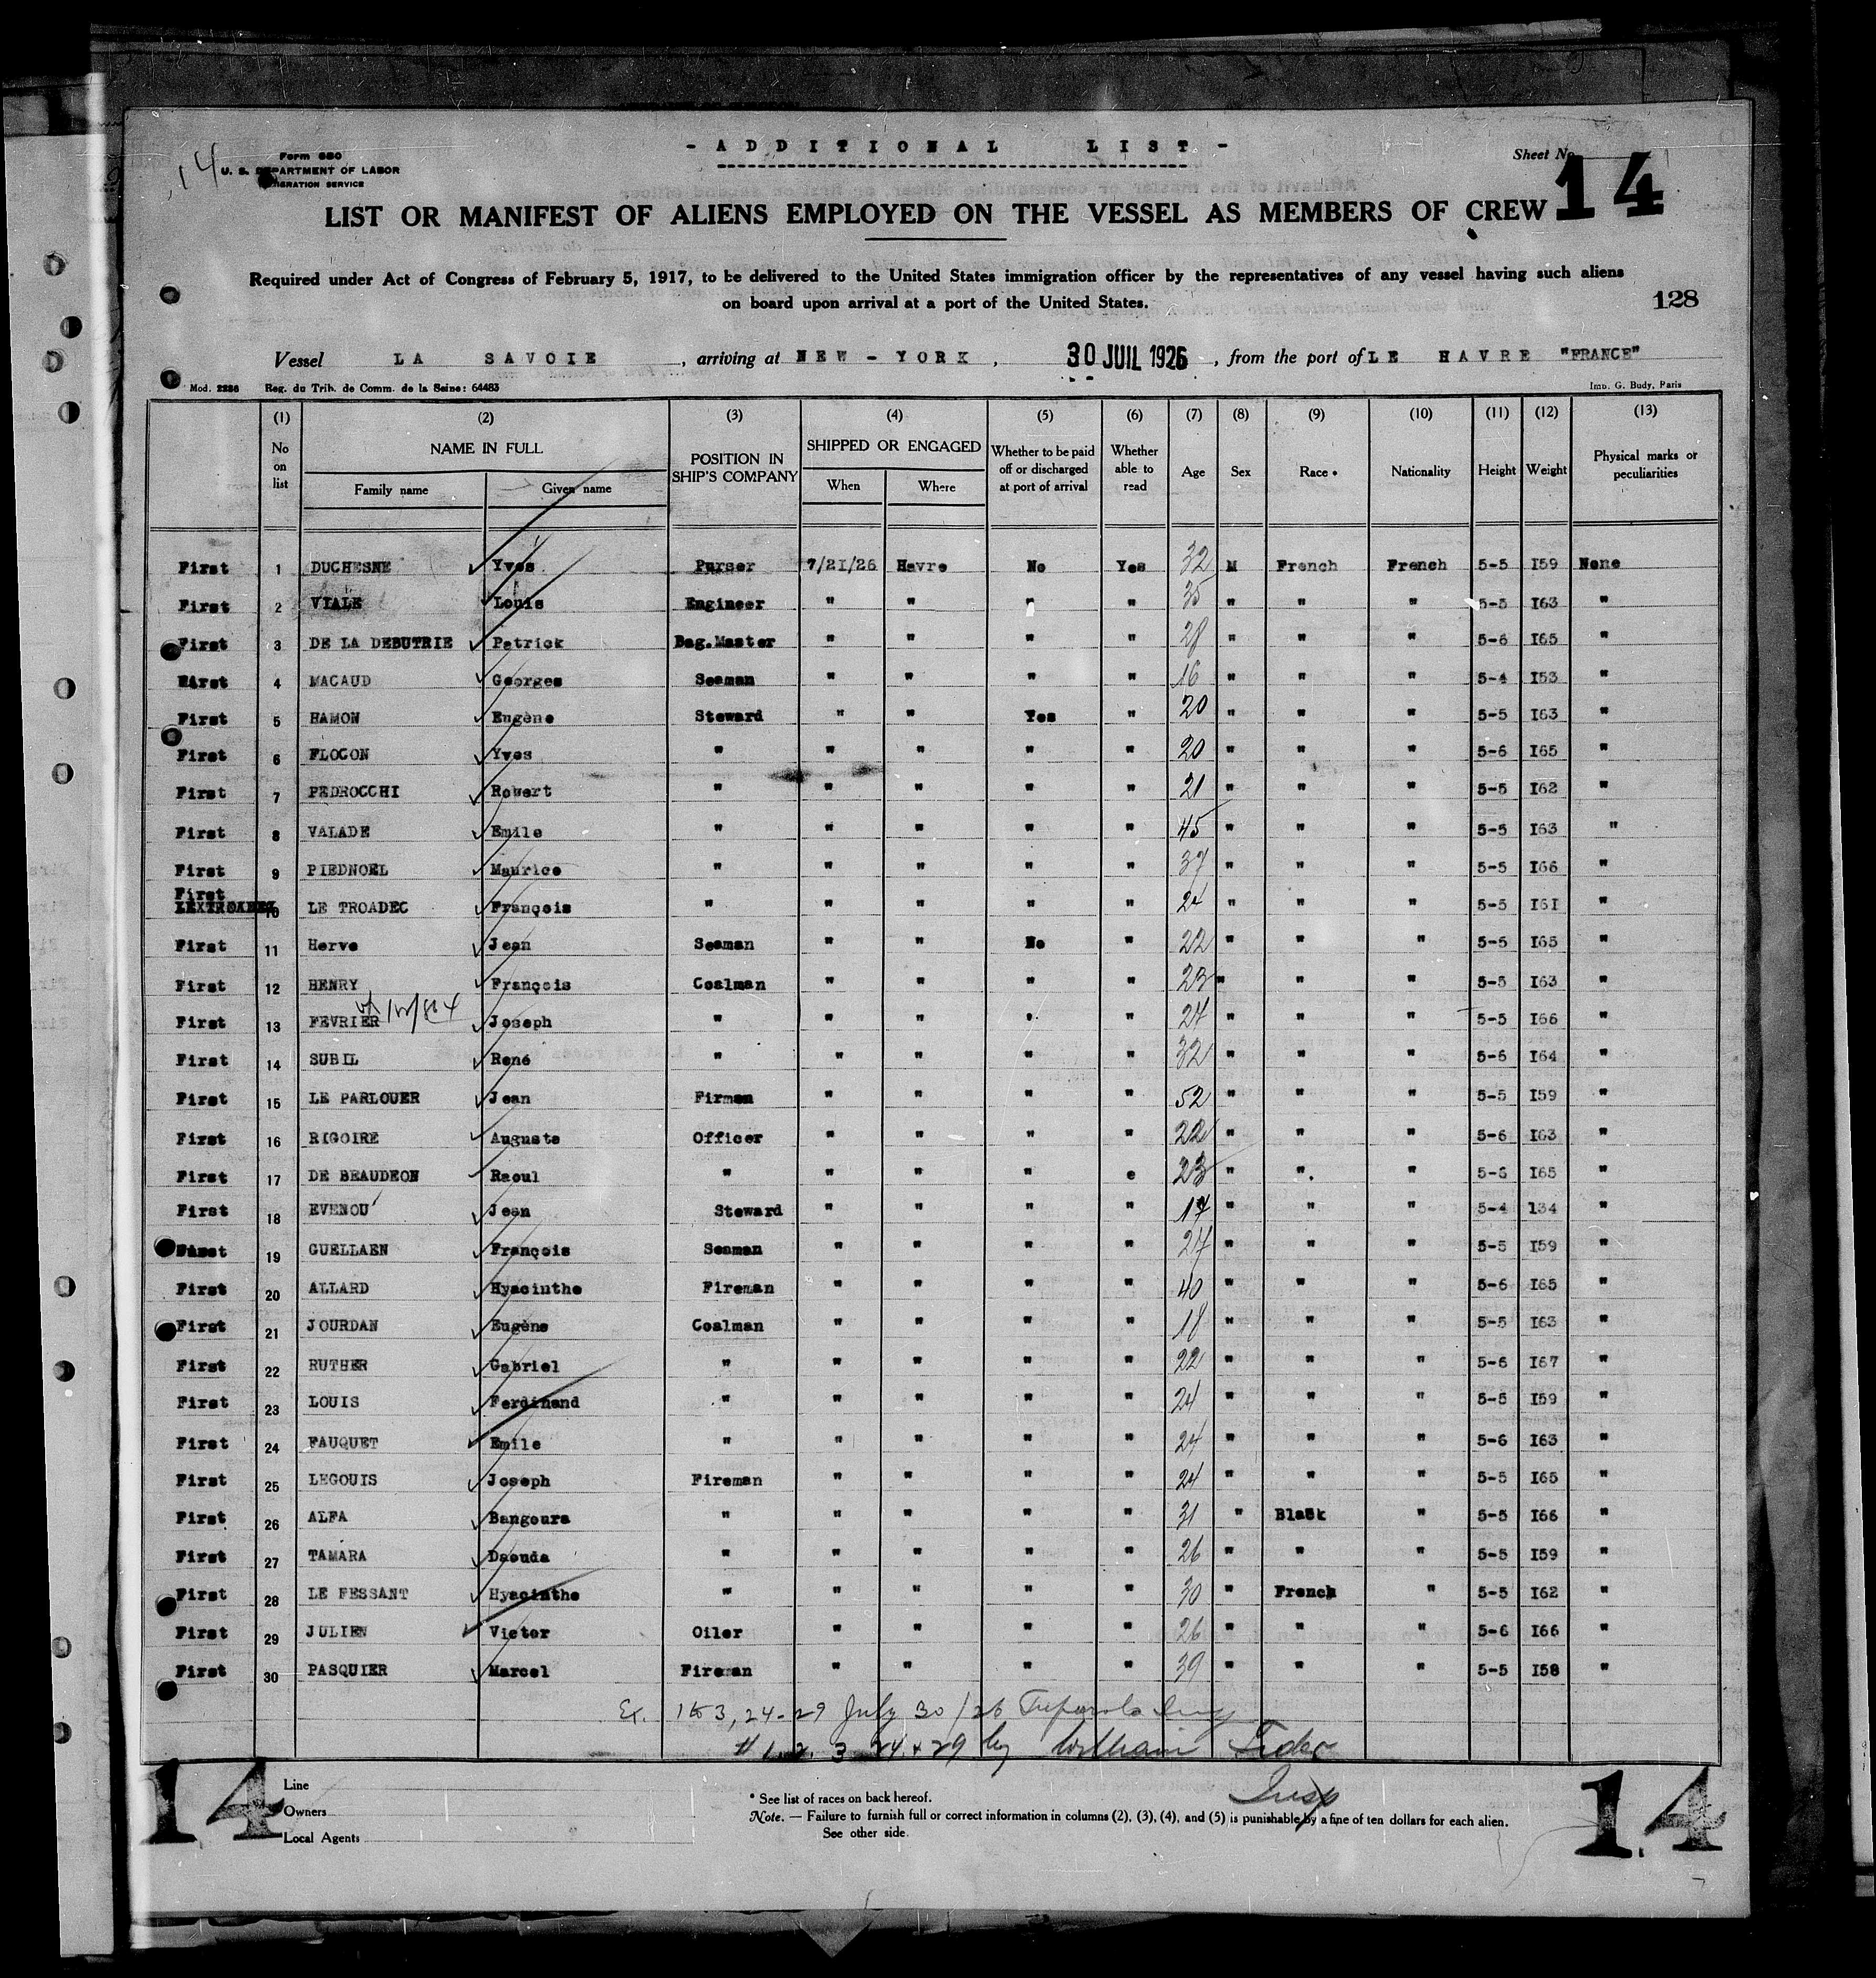 - ADDITIONAL LIST -
14
Form 680
U. S. DEPARTMENT OF LABOR
IMMIGRATION SERVICE
Sheet No.
14
LIST OR MANIFEST OF ALIENS EMPLOYED ON THE VESSEL AS MEMBERS OF CREW
Required under Act of Congress of February 5, 1917, to be delivered to the United States immigration officer by the representatives of any vessel having such aliens
on board upon arrival at a port of the United States.
128
Vessel LA SAVOIE , arriving at NEW - YORK , 30 JUIL 1926 , from the port of LE HAVRE "FRANCE"
Mod. 2286 Reg. du Trib. de Comm. de la Seine: 64483 Imp. G. Budy, Paris
(1) (2) (3) (4) (5) (6) (7) (8) (9) (10) (11) (12) (13)
No on list NAME IN FULL Family name Given name POSITION IN SHIP'S COMPANY SHIPPED OR ENGAGED When Where Whether to be paid off or discharged at port of arrival Whether able to read Age Sex Race • Nationality Height Weight Physical marks or peculiarities
First 1 DUCHESNE Yves Purser 7/21/26 Havre No Yes 32 M French French 5-5 159 None
First 2 VIALE Louis Engineer " " " " 35 " " " 5-5 163 "
First 3 DE LA DEBUTRIE Patrick Bag.Master " " " " 28 " " " 5-6 165 "
First 4 MACAUD Georges Seaman " " " " 16 " " " 5-4 153 "
First 5 HAMON Eugène Steward " " Yes " 20 " " " 5-5 163 "
First 6 FLOCON Yves " " " " " 20 " " " 5-6 165 "
First 7 PEDROCCHI Robert " " " " " 21 " " " 5-5 162 "
First 8 VALADE Emile " " " " " 45 " " " 5-5 163 "
First 9 PIEDNOEL Maurice " " " " " 37 " " " 5-5 166 "
First 10 LE TROADEC François " " " " " 24 " " " 5-5 161 "
First 11 Herve Jean Seaman " " No " 22 " " " 5-6 165 "
First 12 HENRY François Coalman " " " " 23 " " " 5-5 163 "
First 13 FEVRIER Joseph " " " " " 24 " " " 5-5 166 "
First 14 SUBIL René " " " " " 32 " " " 5-6 164 "
First 15 LE PARLOUER Jean Firman " " " " 52 " " " 5-5 159 "
First 16 RIGOIRE Auguste Officer " " " " 22 " " " 5-6 163 "
First 17 DE BEAUDEON Raoul " " " " e 23 " " " 5-6 165 "
First 18 EVENOU Jean Steward " " " " 17 " " " 5-4 134 "
First 19 GUELLAEN François Seaman " " " " 24 " " " 5-5 159 "
First 20 ALLARD Hyacinthe Fireman " " " " 40 " " " 5-6 165 "
First 21 JOURDAN Eugène Coalman " " " " 18 " " " 5-5 163 "
First 22 RUTHER Gabriel " " " " " 22 " " " 5-6 167 "
First 23 LOUIS Ferdinand " " " " " 24 " " " 5-5 159 "
First 24 FAUQUET Emile " " " " " 24 " " " 5-6 163 "
First 25 LEGOUIS Joseph Fireman " " " " 24 " " " 5-5 165 "
First 26 ALFA Bangoura " " " " " 31 " Black " 5-5 166 "
First 27 TAMARA Daouda " " " " " 26 " " " 5-5 159 "
First 28 LE FESSANT Hyacinthe " " " " " 30 " French " 5-5 162 "
First 29 JULIEN Victor Oiler " " " " 26 " " " 5-6 166 "
First 30 PASQUIER Marcel Fireman " " " " 39 " " " 5-5 158 "
1 to 3, 24-29 July 30/26
# 1. 2. 3 24 + 29 by William
Insp
14
Line
Owners
Local Agents
* See list of races on back hereof.
Note. — Failure to furnish full or correct information in columns (2), (3), (4), and (5) is punishable by a fine of ten dollars for each alien.
See other side.
14